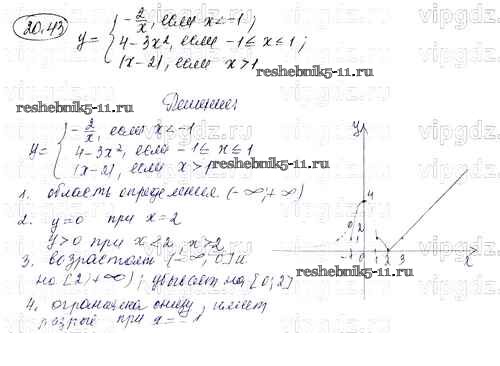 20.43
y = { -2/x, если x < -1;
4 - 3x², если -1 ≤ x ≤ 1;
|x - 2|, если x > 1
reshebnik5-11.ru
Решение:
reshebnik5-11.ru
y = { -2/x, если x < -1
4 - 3x², если -1 ≤ x ≤ 1
|x - 2|, если x > 1
reshebnik5-11.ru
1. область определения (-∞; +∞)
2. y = 0 при x = 2
y > 0 при x < 2, x > 2
3. возрастает (-∞; 0] и
на [2; +∞); убывает на [0; 2]
4. ограничена снизу, имеет
разрыв при x = 1
y
4
-1 0 1 2 3
x
reshebnik5-11.ru
vipgdz.com